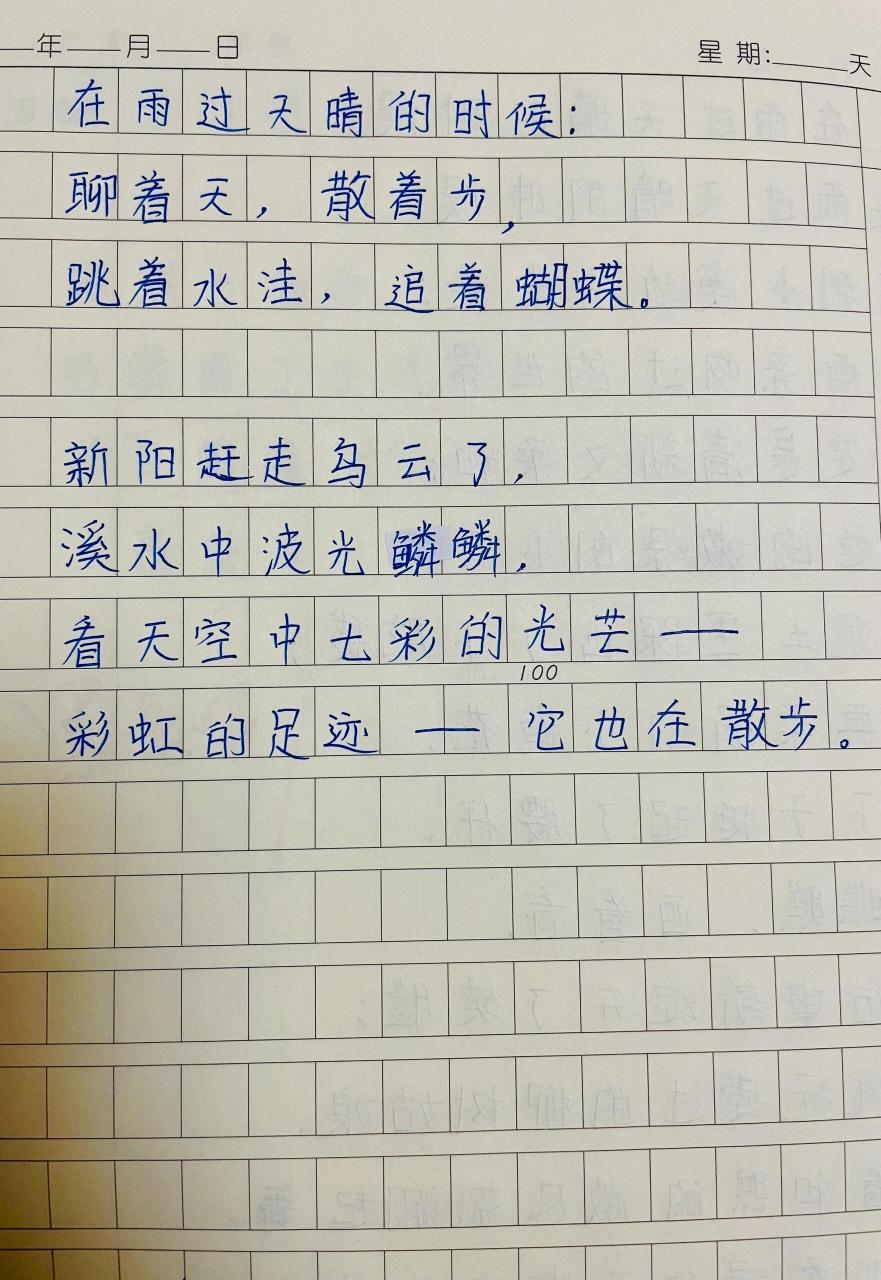 年 月 日 星期: 天
在雨过天晴的时候:
聊着天,散着步,
跳着水洼,追着蝴蝶。
新阳赶走乌云了,
溪水中波光鳞鳞,
看天空中七彩的光芒——
100
彩虹的足迹——它也在散步。